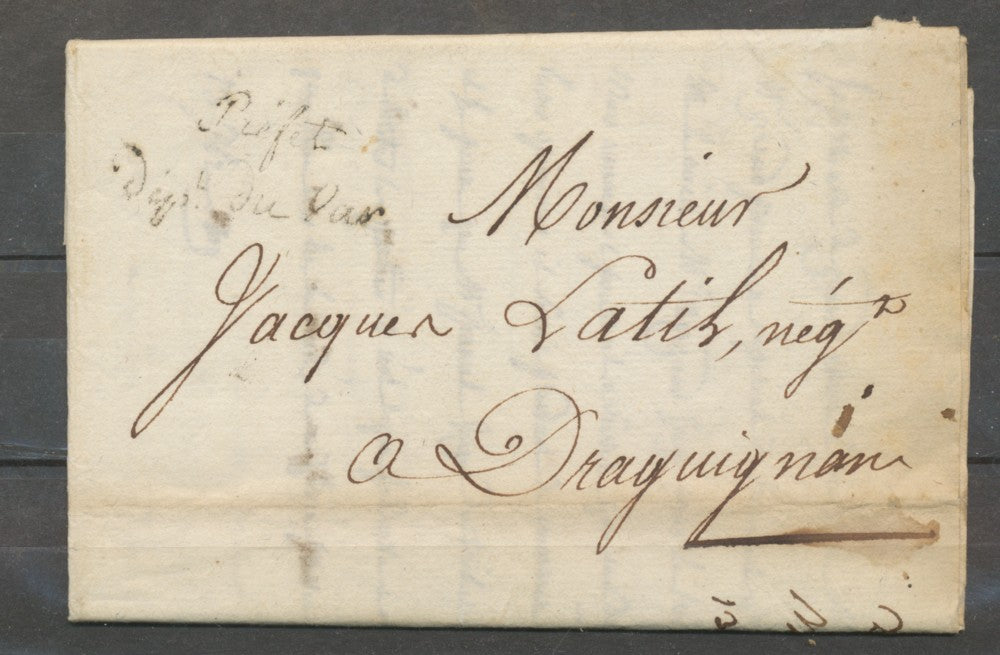 Préfet
Dépt. du Var
Monsieur
Jacques Latil, négt
a Draguignan